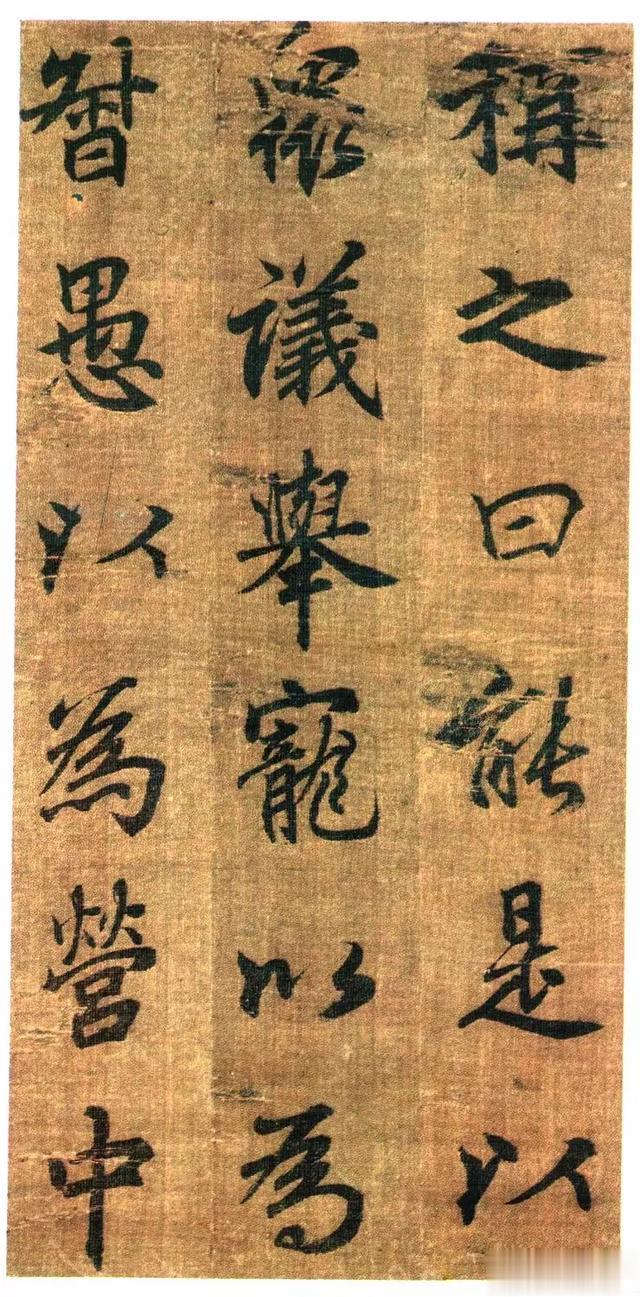 稱之曰能是以
衆議舉寵以為
智愚以為營中